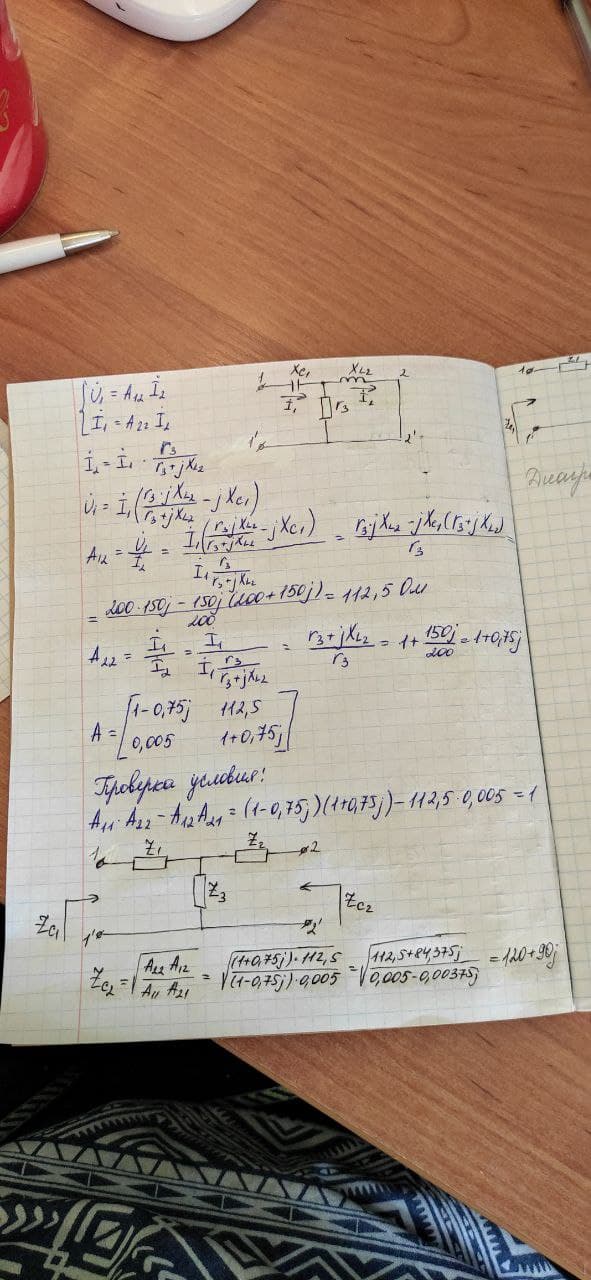 U̇₁ = A₁₂ İ₂
İ₁ = A₂₂ İ₂
1 X_C₁ X_L₂ 2
İ₁ r₃ İ₂
1' 2'
İ₂ = İ₁ · r₃/(r₃+jX_L₂)
U̇₁ = İ₁(r₃·jX_L₂/(r₃+jX_L₂) - jX_C₁)
A₁₂ = U̇₁/İ₂ = İ₁(r₃jX_L₂/(r₃+jX_L₂) - jX_C₁)/(İ₁ r₃/(r₃+jX_L₂)) = (r₃·jX_L₂ - jX_C₁(r₃+jX_L₂))/r₃ =
= (200·150j - 150j(200+150j))/200 = 112,5 Ом
A₂₂ = İ₁/İ₂ = İ₁/(İ₁ r₃/(r₃+jX_L₂)) = (r₃+jX_L₂)/r₃ = 1 + 150j/200 = 1+0,75j
A = [1-0,75j 112,5
0,005 1+0,75j]
Проверка условия!
A₁₁·A₂₂ - A₁₂A₂₁ = (1-0,75j)(1+0,75j) - 112,5·0,005 = 1
1 Z₁ Z₂ 2
Z_C₁ Z₃ Z_C₂
1' 2'
Z_C₂ = √(A₂₂ A₁₂/(A₁₁ A₂₁)) = √((1+0,75j)·112,5/((1-0,75j)·0,005)) = √((112,5+84,375j)/(0,005-0,00375j)) = 120+90j
1 Z₁
1'